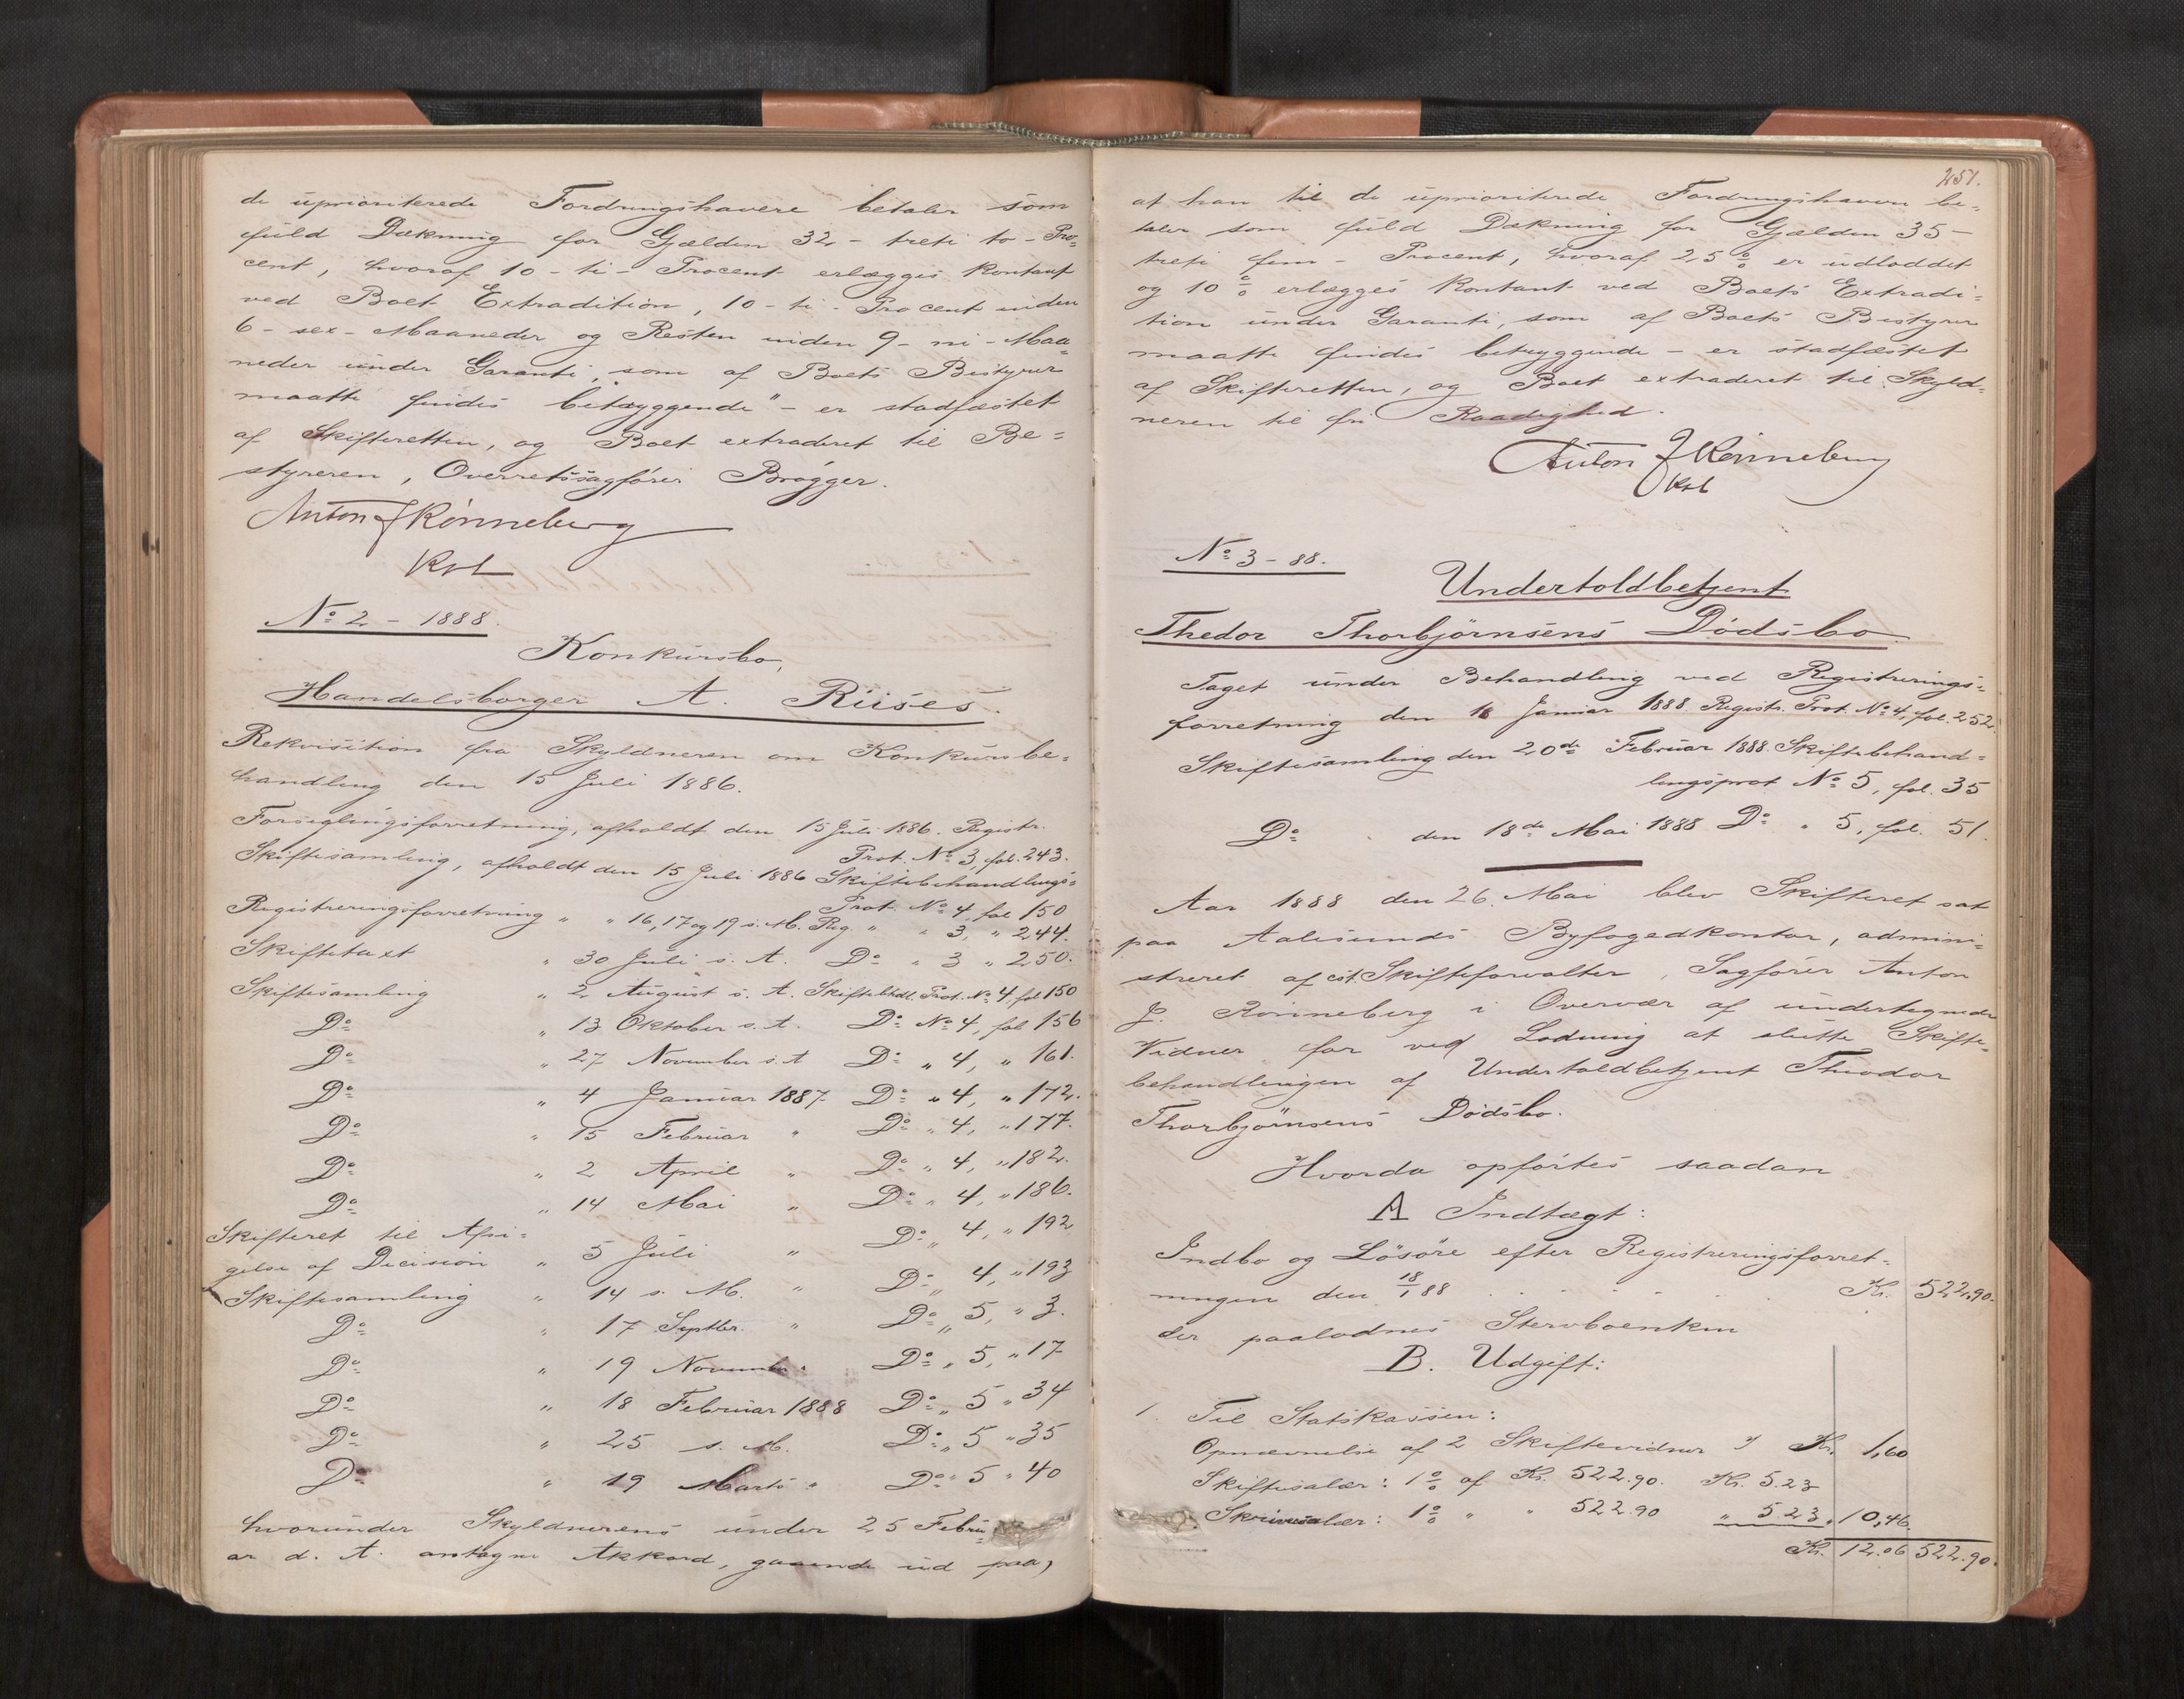 de uprioriterede Fordrungshavere betaler som
fuld Dækning for Gjælden 32 - treti to - Pro-
cent, hvoraf 10 - ti - Procent erlægges kontant
ved Boets Extradition, 10 - ti - Procent inden
6 - sex - Maaneder og Resten inden 9 - ni - Maa-
neder under Garanti, som af Boets Bestyrer
maatte findes betryggende" - er stadfæstet
af Skifteretten, og Boet extraderet til Be-
styreren, Overretssagfører Brøgger.
Anton J Rønneberg
Kst
No 2 - 1888.
Konkursbo,
Handelsborger A. Riises.
Rekvisition fra Skyldneren om Konkursbe-
handling den 15 Juli 1886.
Forseglingsforretning, afholdt den 15 Juli 1886. Registr.
Prot. No 3, fol. 243.
Skiftesamling, afholdt den 15 Juli 1886 Skiftebehandlings-
Prot. No 4, fol 150
Registreringsforretning " " 16, 17 og 19 s. M. Reg. " " 3, " 244.
Skiftetaxt " 30 Juli s. A. Do " 3 " 250.
Skiftesamling " 2 August s. A. Skiftebhdl. Prot. No 4, fol 150
Do " 13 Oktober s. A. Do No 4, fol 156
Do " 27 November s. A Do " 4, " 161.
Do " 4 Januar 1887 Do " 4, " 172.
Do " 15 Februar " Do " 4, " 177.
Do " 2 April " Do " 4, " 182.
Do " 14 Mai " Do " 4, " 186.
Skifteret til Afsi-
gelse af Decision " 5 Juli " Do " 4, " 192
Skiftesamling " 14 s. M. " Do " 4, " 193
Do " 17 Septbr. " Do " 5, " 3.
Do " 19 November " Do " 5, " 17
Do " 18 Februar 1888 Do " 5 " 34
Do " 25 s. M. Do " 5 " 35
Do " 19 Marts " Do " 5 " 40
hvorunder Skyldnerens under 25 Febru-
ar d. A. antagne Akkord, gaaende ud paa,
251.
at han til de uprioriterede Fordrungshavere be-
taler som fuld Dækning for Gjælden 35 -
treti fem - Procent, hvoraf 25 % er udloddet
og 10 % erlægges kontant ved Boets Extradi-
tion under Garanti, som af Boets Bestyrer
maatte findes betryggende - er stadfæstet
af Skifteretten, og Boet extraderet til Skyld-
neren til fri Raadighed.
Anton J Rønneberg
Kst
No 3 - 88.
Undertoldbetjent
Thedor Thorbjørnsens Dødsbo
Taget under Behandling ved Registrerings-
forretning den 18 Januar 1888. Registr. Prot. No 4, fol. 252
Skiftesamling den 20de Februar 1888. Skiftebehand-
lingsprot No 5, fol. 35
Do den 18de Mai 1888 Do " 5, fol. 51.
Aar 1888 den 26. Mai blev Skifteret sat
paa Aalesunds Byfogedkontor, admini-
streret af cst. Skifteforvalter, Sagfører Anton
J. Rønneberg i Overvær af undertegnede
Vidner for ved Lodning at slutte Skifte-
behandlingen af Undertoldbetjent Theodor
Thorbjørnsens Dødsbo.
Hvorda opførtes saadan
A Indtægt:
Indbo og Løsøre efter Registreringsforret-
ningen den 18/1 88 . . . . . Kr. 522.90.
der paalodnes Stervboenken
B. Udgift:
1. Til Statskassen:
Opnævnelse af 2 Skiftevidner Kr. 1,60
Skiftesalær: 1 % af Kr. 522.90. Kr. 5.23
Skriversalær: 1 % " " 522.90 " 5.23. 10,46.
Kr. 12.06 522.90.